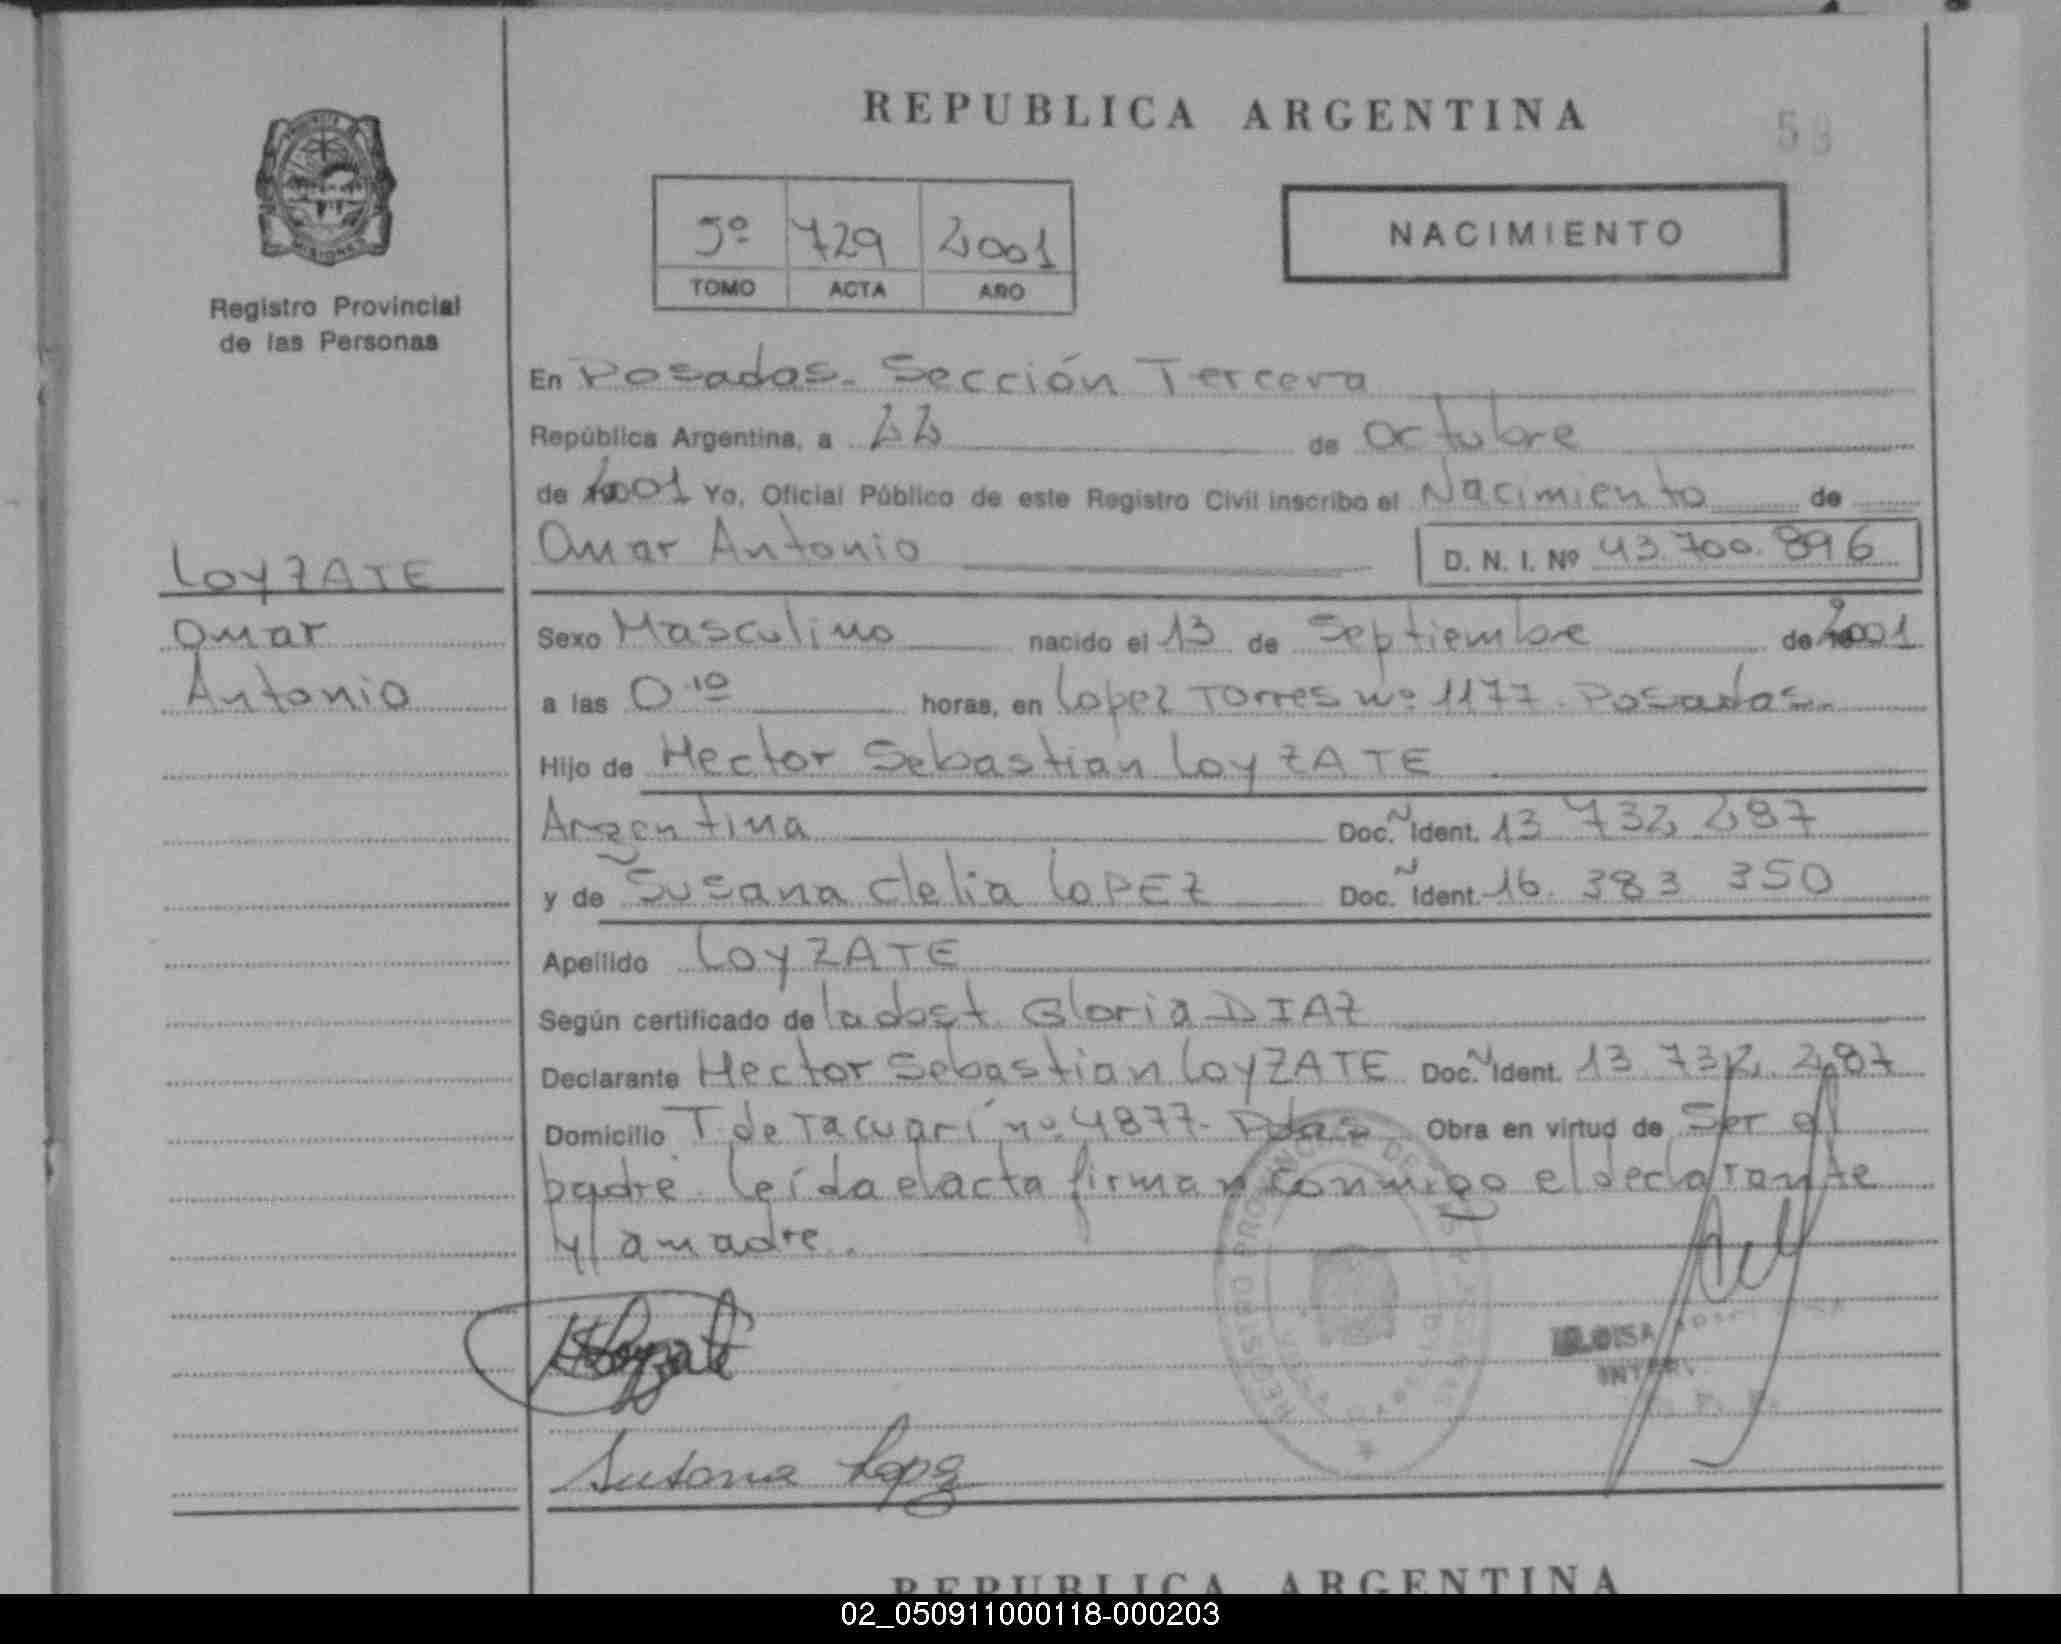 REPUBLICA ARGENTINA
59
5º 729 2001
TOMO ACTA AÑO
NACIMIENTO
MISIONES
Registro Provincial
de las Personas
En Posadas. Sección Tercera
República Argentina, a 22 de Octubre
de 2001 Yo, Oficial Público de este Registro Civil inscribo el Nacimiento de
Omar Antonio D. N. I. Nº 43.700.896
LoyZATE
Omar
Antonio
Sexo Masculino nacido el 13 de Septiembre de 2001
a las 0.10 horas, en Lopez Torres nº 1177. Posadas.
Hijo de Hector Sebastian LoyZATE
Argentina Doc. Ident. 13 732 287
y de Susana Clelia LOPEZ Doc. Ident. 16. 383 350
Apellido LoyZATE
Según certificado de la obst. Gloria DIAZ
Declarante Hector Sebastian LoyZATE Doc. Ident. 13 732. 287
Domicilio T. de Tacuarí nº 4877. Pdas Obra en virtud de Ser el
padre. Leída el acta firman conmigo el declarante
y la madre.
REGISTRO PROVINCIAL DE LAS PERSONAS
Susana Lopez
REPUBLICA ARGENTINA
02_050911000118-000203